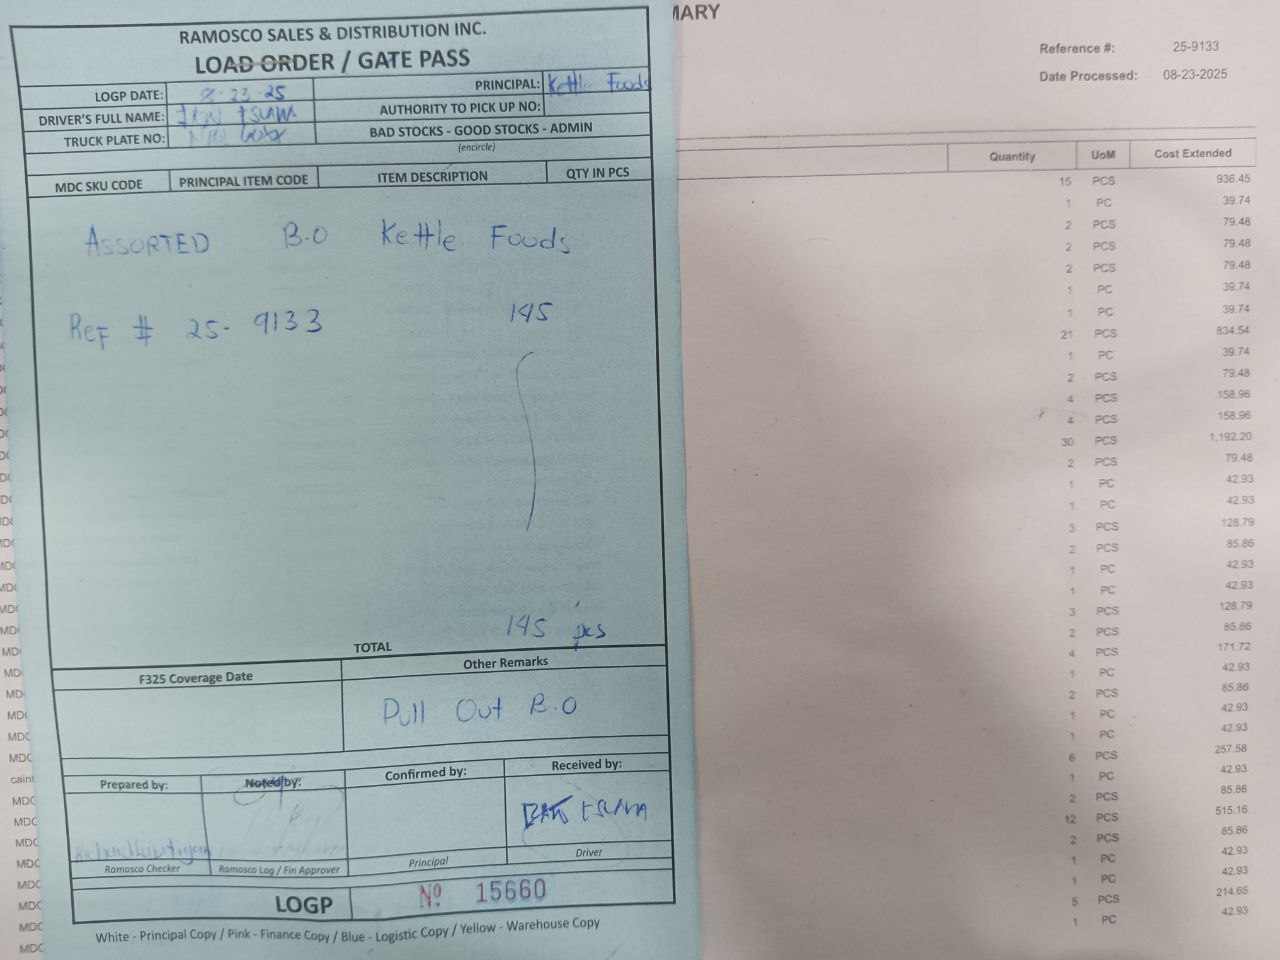 RAMOSCO SALES & DISTRIBUTION INC.
LOAD ORDER / GATE PASS
LOGP DATE: 8-23-25
PRINCIPAL: Kettle Foods
DRIVER'S FULL NAME:
AUTHORITY TO PICK UP NO:
TRUCK PLATE NO:
BAD STOCKS - GOOD STOCKS - ADMIN
(encircle)
MDC SKU CODE PRINCIPAL ITEM CODE ITEM DESCRIPTION QTY IN PCS
ASSORTED B.O Kettle Foods
Ref # 25-9133 145
145 pcs
TOTAL
F325 Coverage Date Other Remarks
Pull Out B.O
Prepared by: Noted by: Confirmed by: Received by:
Ramosco Checker Ramosco Log / Fin Approver Principal Driver
LOGP Nº 15660
White - Principal Copy / Pink - Finance Copy / Blue - Logistic Copy / Yellow - Warehouse Copy
MARY
Reference #: 25-9133
Date Processed: 08-23-2025
Quantity UoM Cost Extended
15 PCS 936.45
1 PC 39.74
2 PCS 79.48
2 PCS 79.48
2 PCS 79.48
1 PC 39.74
1 PC 39.74
21 PCS 834.54
1 PC 39.74
2 PCS 79.48
4 PCS 158.96
4 PCS 158.96
30 PCS 1,192.20
2 PCS 79.48
1 PC 42.93
1 PC 42.93
3 PCS 128.79
2 PCS 85.86
1 PC 42.93
1 PC 42.93
3 PCS 128.79
2 PCS 85.86
4 PCS 171.72
1 PC 42.93
2 PCS 85.86
1 PC 42.93
1 PC 42.93
6 PCS 257.58
1 PC 42.93
2 PCS 85.86
12 PCS 515.16
2 PCS 85.86
1 PC 42.93
1 PC 42.93
5 PCS 214.65
1 PC 42.93